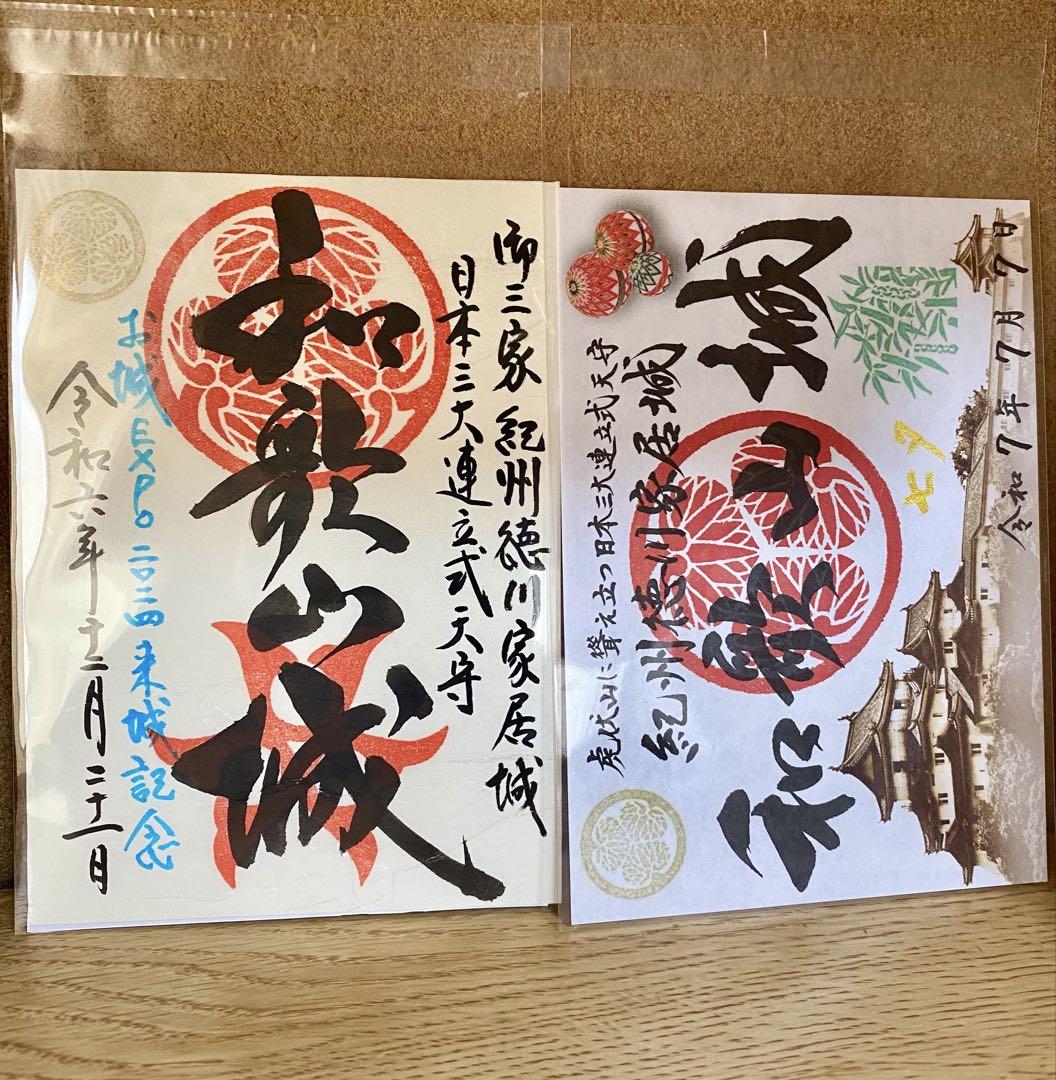 御三家紀州徳川家居城
日本三大連立式天守
和歌山城
お城EXPO二〇二四来城記念
令和六年十二月二十一日
虎伏山に聳え立つ日本三大連立式天守
紀州徳川家居城
和歌山城
七夕
令和7年7月7日